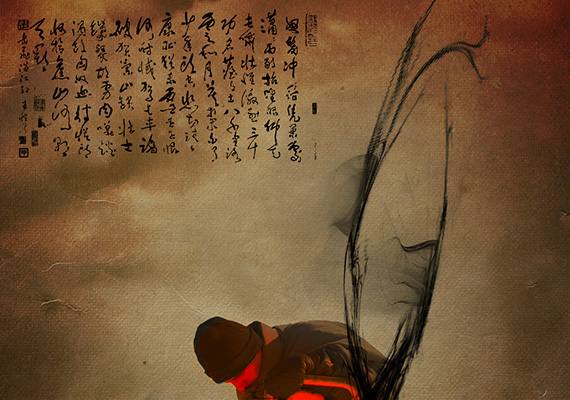 怒髮冲冠凭欄處
瀟雨歇抬望眼仰天
長嘯壯懷激烈三十
功名塵與土八千里路
雲和月莫等閒白了
少年頭空悲切靖
康恥猶未雪臣子恨
何時滅駕長車踏
破賀蘭山缺壯士
飢餐胡虜肉笑談
渴飲匈奴血待從頭
收拾舊山河朝
天闕
岳飛滿江紅